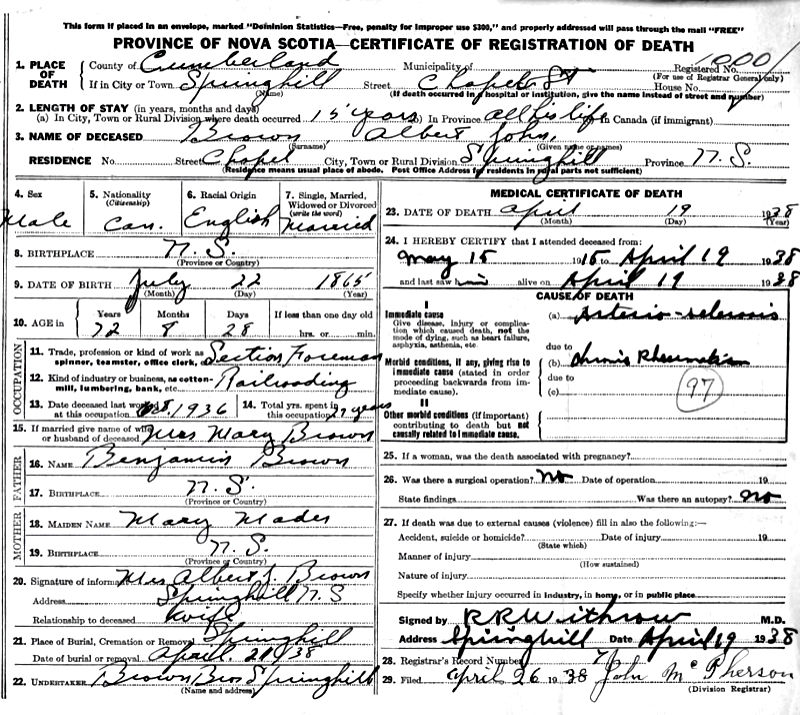 This form if placed in an envelope, marked "Dominion Statistics—Free, penalty for improper use $300," and properly addressed will pass through the mail "FREE"
PROVINCE OF NOVA SCOTIA—CERTIFICATE OF REGISTRATION OF DEATH
1. PLACE OF DEATH
County of Cumberland Municipality of Registered No.
(For use of Registrar General only)
If in City or Town Springhill Street Chapel St House No.
(Name) (If death occurred in a hospital or institution, give the name instead of street and number)
2. LENGTH OF STAY (in years, months and days)
(a) In City, Town or Rural Division where death occurred 15 years In Province all his life In Canada (if immigrant)
3. NAME OF DECEASED Brown Albert John
(Surname) (Given name or names)
RESIDENCE No. Street Chapel City, Town or Rural Division Springhill Province N.S.
(Residence means usual place of abode. Post Office Address for residents in rural parts not sufficient)
4. Sex Male
5. Nationality (Citizenship) Can.
6. Racial Origin English
7. Single, Married, Widowed or Divorced (write the word) Married
8. BIRTHPLACE N.S.
(Province or Country)
9. DATE OF BIRTH July 22 1865
(Month) (Day) (Year)
10. AGE in Years Months Days If less than one day old
72 8 28 hrs. or min.
OCCUPATION
11. Trade, profession or kind of work as spinner, teamster, office clerk, Section Foreman
12. Kind of industry or business, as cotton-mill, lumbering, bank, etc. Railroading
13. Date deceased last worked at this occupation 1936
14. Total yrs. spent in this occupation years
15. If married give name of wife or husband of deceased Mrs Mary Brown
FATHER
16. NAME Benjamin Brown
17. BIRTHPLACE N.S.
(Province or Country)
MOTHER
18. MAIDEN NAME Mary Mader
19. BIRTHPLACE N.S.
(Province or Country)
20. Signature of informant Mrs Albert J. Brown
Address Springhill N.S
Relationship to deceased Wife
21. Place of Burial, Cremation or Removal Springhill
Date of burial or removal April 21 1938
22. UNDERTAKER Brown Bros Springhill
(Name and address)
MEDICAL CERTIFICATE OF DEATH
23. DATE OF DEATH April 19 1938
(Month) (Day) (Year)
24. I HEREBY CERTIFY that I attended deceased from:
May 15 19 to April 19 1938
and last saw him alive on April 19 1938
CAUSE OF DEATH
I
Immediate cause
Give disease, injury or complication which caused death, not the mode of dying, such as heart failure, asphyxia, asthenia, etc.
(a) Arterio-sclerosis
due to
Morbid conditions, if any, giving rise to immediate cause (stated in order proceeding backwards from immediate cause).
(b) Chronic Rheumatism
due to
(c)
97
II
Other morbid conditions (if important) contributing to death but not causally related to immediate cause.
25. If a woman, was the death associated with pregnancy?
26. Was there a surgical operation? No Date of operation 19
State findings Was there an autopsy? No
27. If death was due to external causes (violence) fill in also the following:—
Accident, suicide or homicide? Date of injury 19
(State which)
Manner of injury
(How sustained)
Nature of injury
Specify whether injury occurred in industry, in home, or in public place
Signed by R R Withrow M.D.
Address Springhill Date April 19 1938
28. Registrar's Record Number
29. Filed April 26 1938 John McPherson
(Division Registrar)